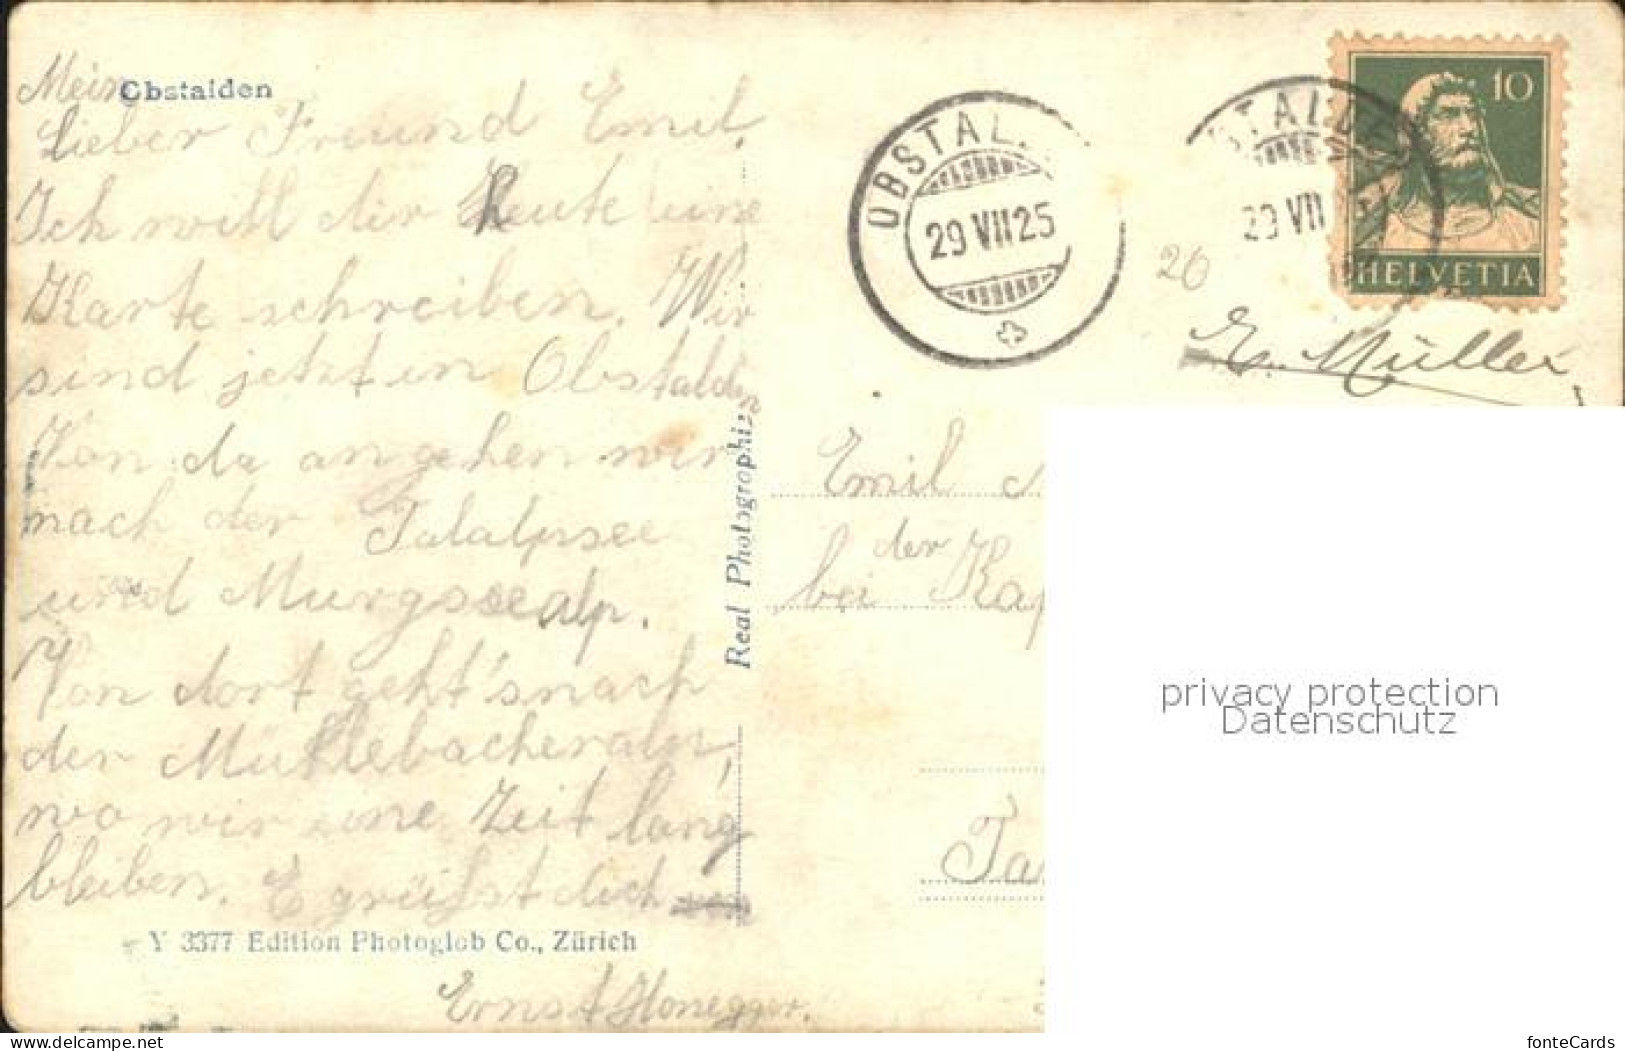 Obstalden
Mein
Lieber Freund Emil,
Ich will dir heute eine
Karte schreiben. Wir
sind jetzt in Obstalden
Von da an gehen wir
nach der Talalpsee
und Murgseealp.
Von dort geht's nach
der Mühlebacheralp,
wo wir eine Zeit lang
bleiben. Es grüsst dich
Y 3377 Edition Photoglob Co., Zürich
Ernst Honegger.
Real Photographie
OBSTAL
29 VII 25
STALDEN
29 VII
10
HELVETIA
26
E. Müller
Emil
der
bei Kap
Ta
privacy protection
Datenschutz
www.ansichtskartenversand.com
fonteCards